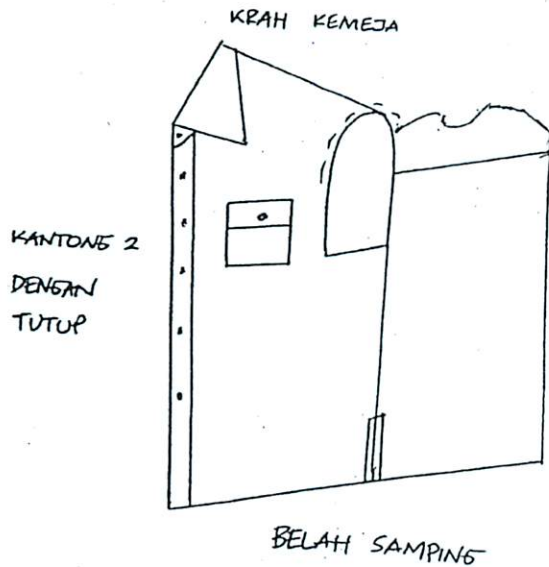 KRAH KEMEJA
KANTONG 2
DENGAN
TUTUP
BELAH SAMPING